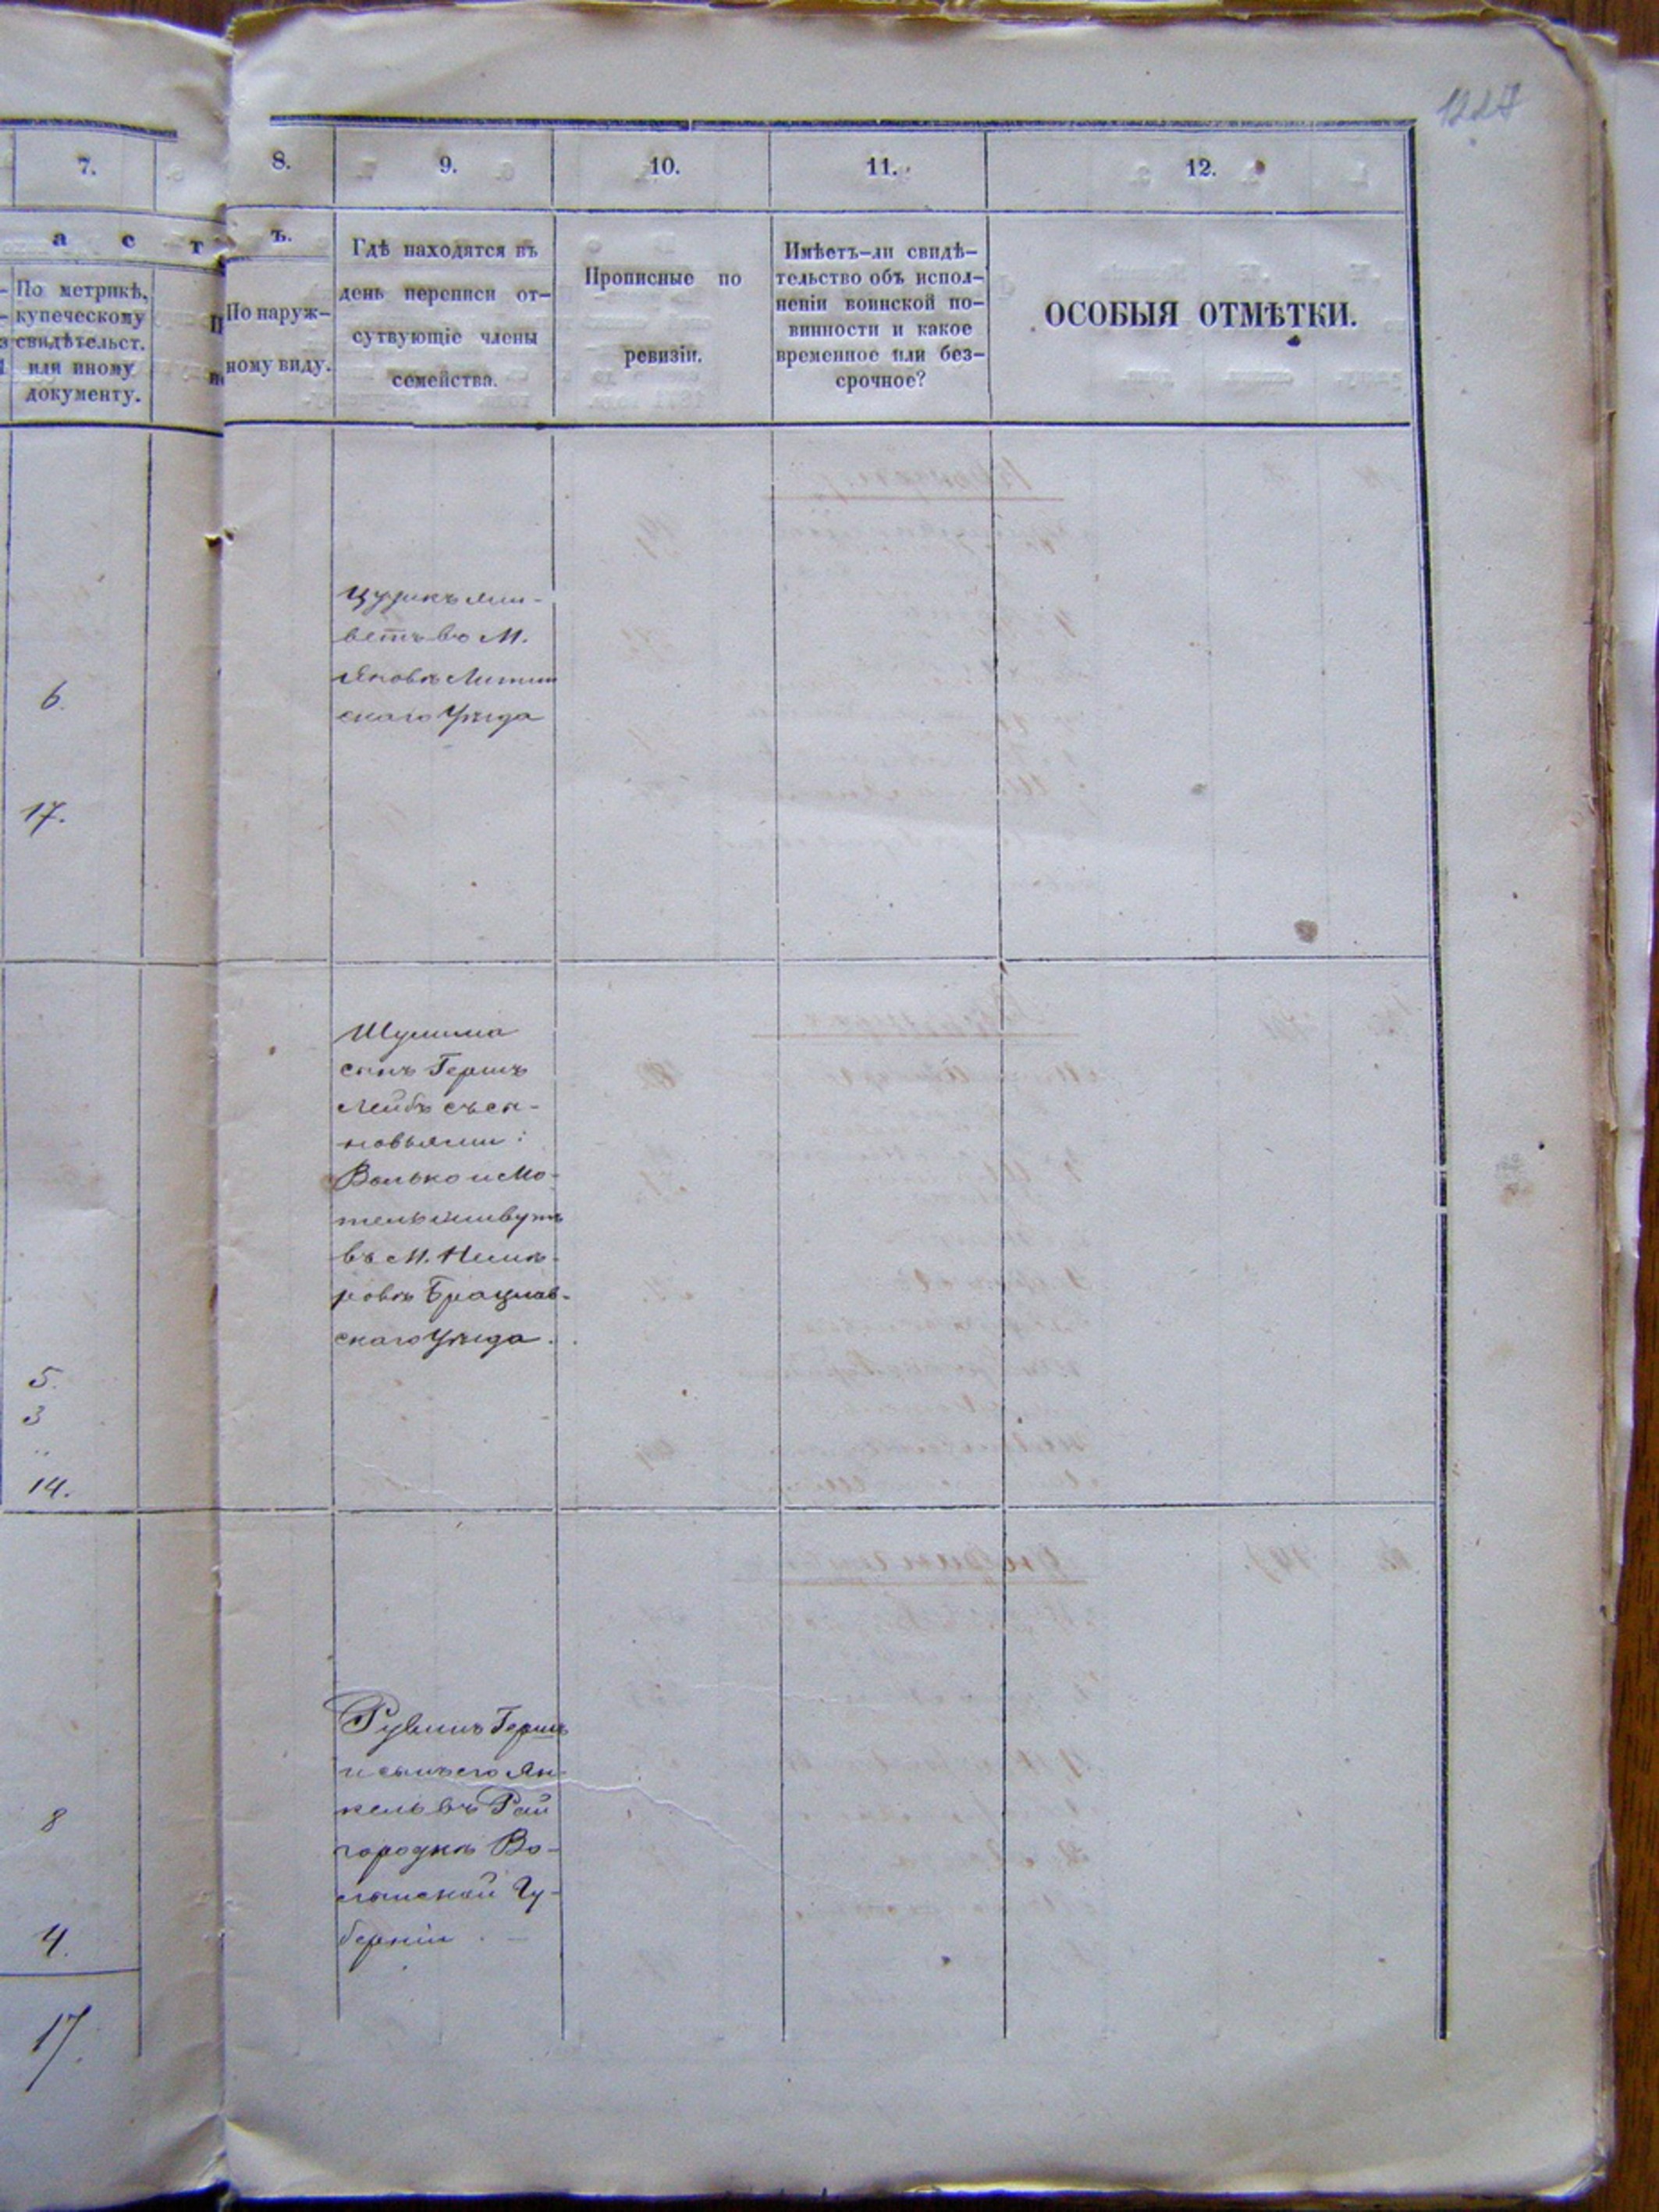 7.
8.
9.
10.
11.
12.
а с т
ъ.
По метрикѣ,
купеческому
свидѣтельст.
или иному
документу.
По наруж-
ному виду.
Гдѣ находятся въ
день переписи от-
сутвующіе члены
семейства.
Прописные по
ревизіи.
Имѣетъ-ли свидѣ-
тельство объ испол-
неніи воинской по-
винности и какое
временное или без-
срочное?
ОСОБЫЯ ОТМѢТКИ.
6.
17.
жи-
ветъ въ М.
Яновѣ Литин
скаго Уѣзда
Шулима
сынъ Гершъ
Лейбъ съ сы-
новьями:
Волько и Мо-
тель живутъ
въ М. Немѣ-
ровѣ Брацлав-
скаго Уѣзда.
5.
3
"
14.
Рувинъ Гершъ
и сынъ его Ян-
кель въ Рай
городкѣ Во-
лынской Гу-
берніи.
8
4.
17.